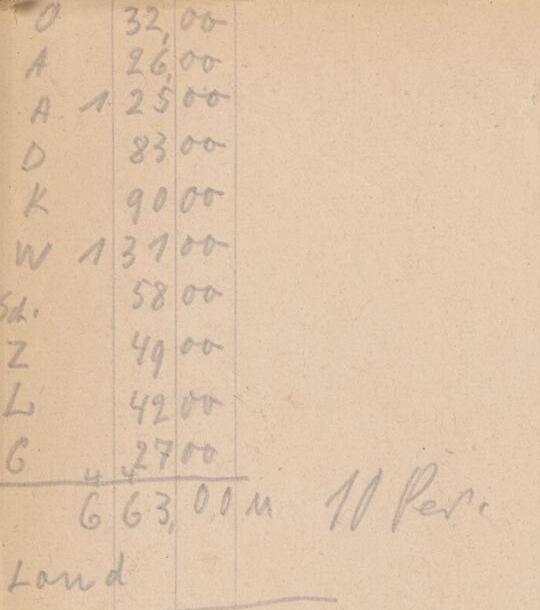 O 32,00
A 26,00
A 125 00
D 83 00
K 90 00
W 131 00
Sch. 58 00
Z 49 00
L 42 00
G 27 00
4 4
663,00 M 10 Per.
Land